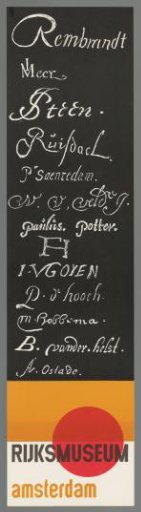 Rembrandt
Meer.
JSteen.
Ruisdael.
P.r Saenredam.
W. V. Velde J.
paulus. Potter.
FH
I·VGOYEN
P. d. hooch.
m. hobbema.
B. vander. helst.
A. Ostade.
RIJKSMUSEUM
amsterdam